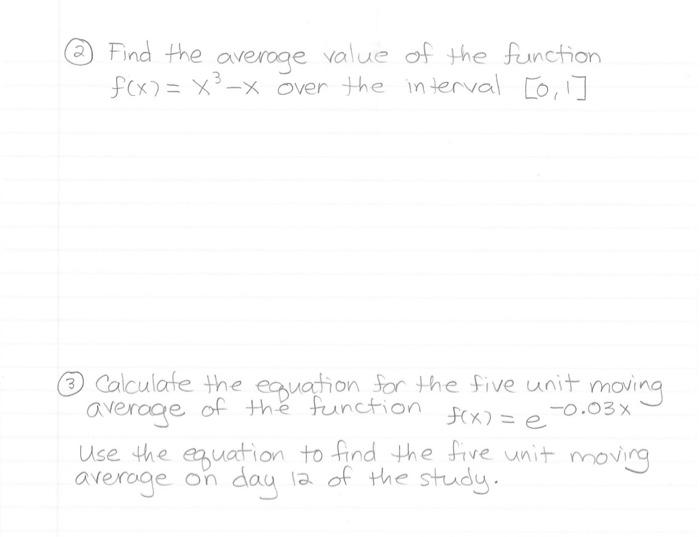 ② Find the average value of the function
f(x) = x³-x over the interval [0,1]
③ Calculate the equation for the five unit moving
average of the function f(x) = e^-0.03x
Use the equation to find the five unit moving
average on day 12 of the study.